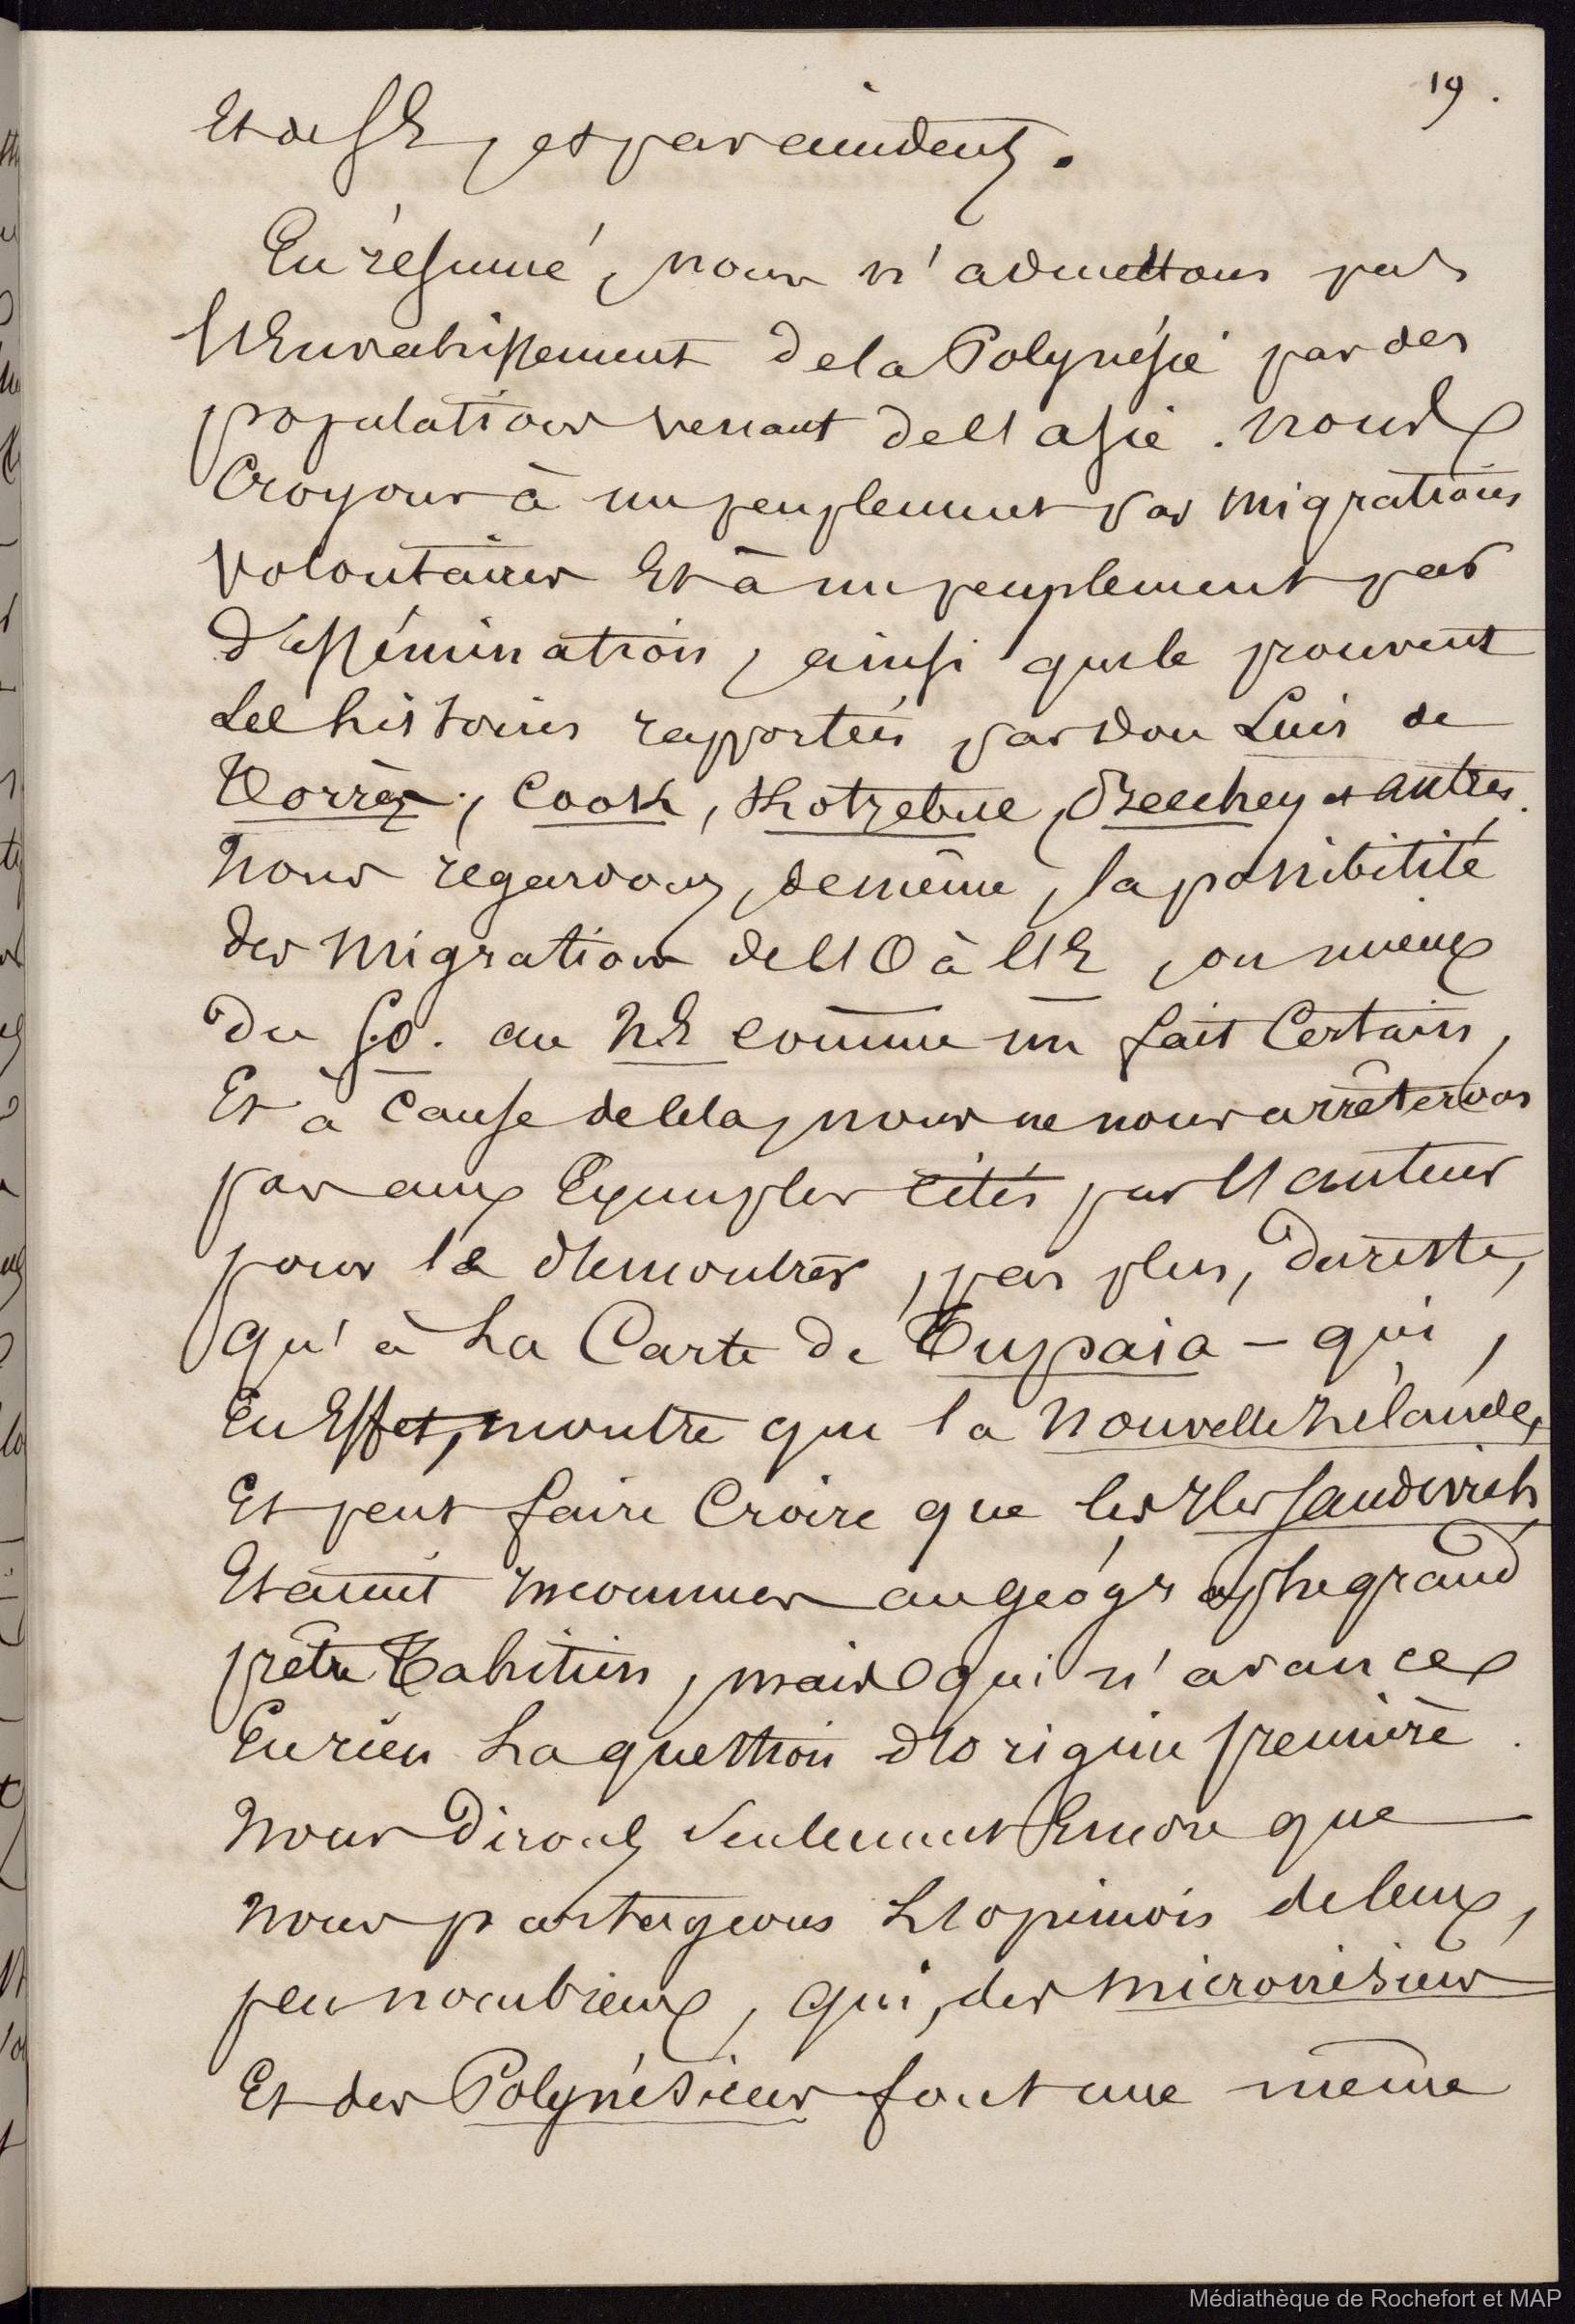 19.
Et de SE, et par accidents.
En résumé, nous n'admettons pas
l'Envahissement de la Polynésie par des
populations venant de l'asie. nous
Croyons à un peuplement par migrations
volontaires Et à un peuplement par
dissémination, ainsi que le prouvent
les histoires rapportées par Don Luis de
Torrèz, Cook, Kotzebue, Beechey et autres.
Nous regardons, de même, la possibilité
des migrations de l'O à l'E, ou mieux
du S.O. au NE comme un fait Certain,
Et à Cause de cela, nous ne nous arrêterons
pas aux Exemples cités par l'auteur
pour le démontrer, pas plus, du reste,
qu'à La Carte de Tupaia - qui,
En Effet, montre que la Nouvelle Zélande,
Et peut faire Croire que les Iles Sandwich
Etaient inconnues au géographe grand
prêtre Tahitien, mais qui n'avance
En rien La question d'origine première.
Nous Dirons seulement Encore que
nous partageons L'opinion de ceux,
peu nombreux, qui, des Micronésiens
Et des Polynésiens font une même
Médiathèque de Rochefort et MAP